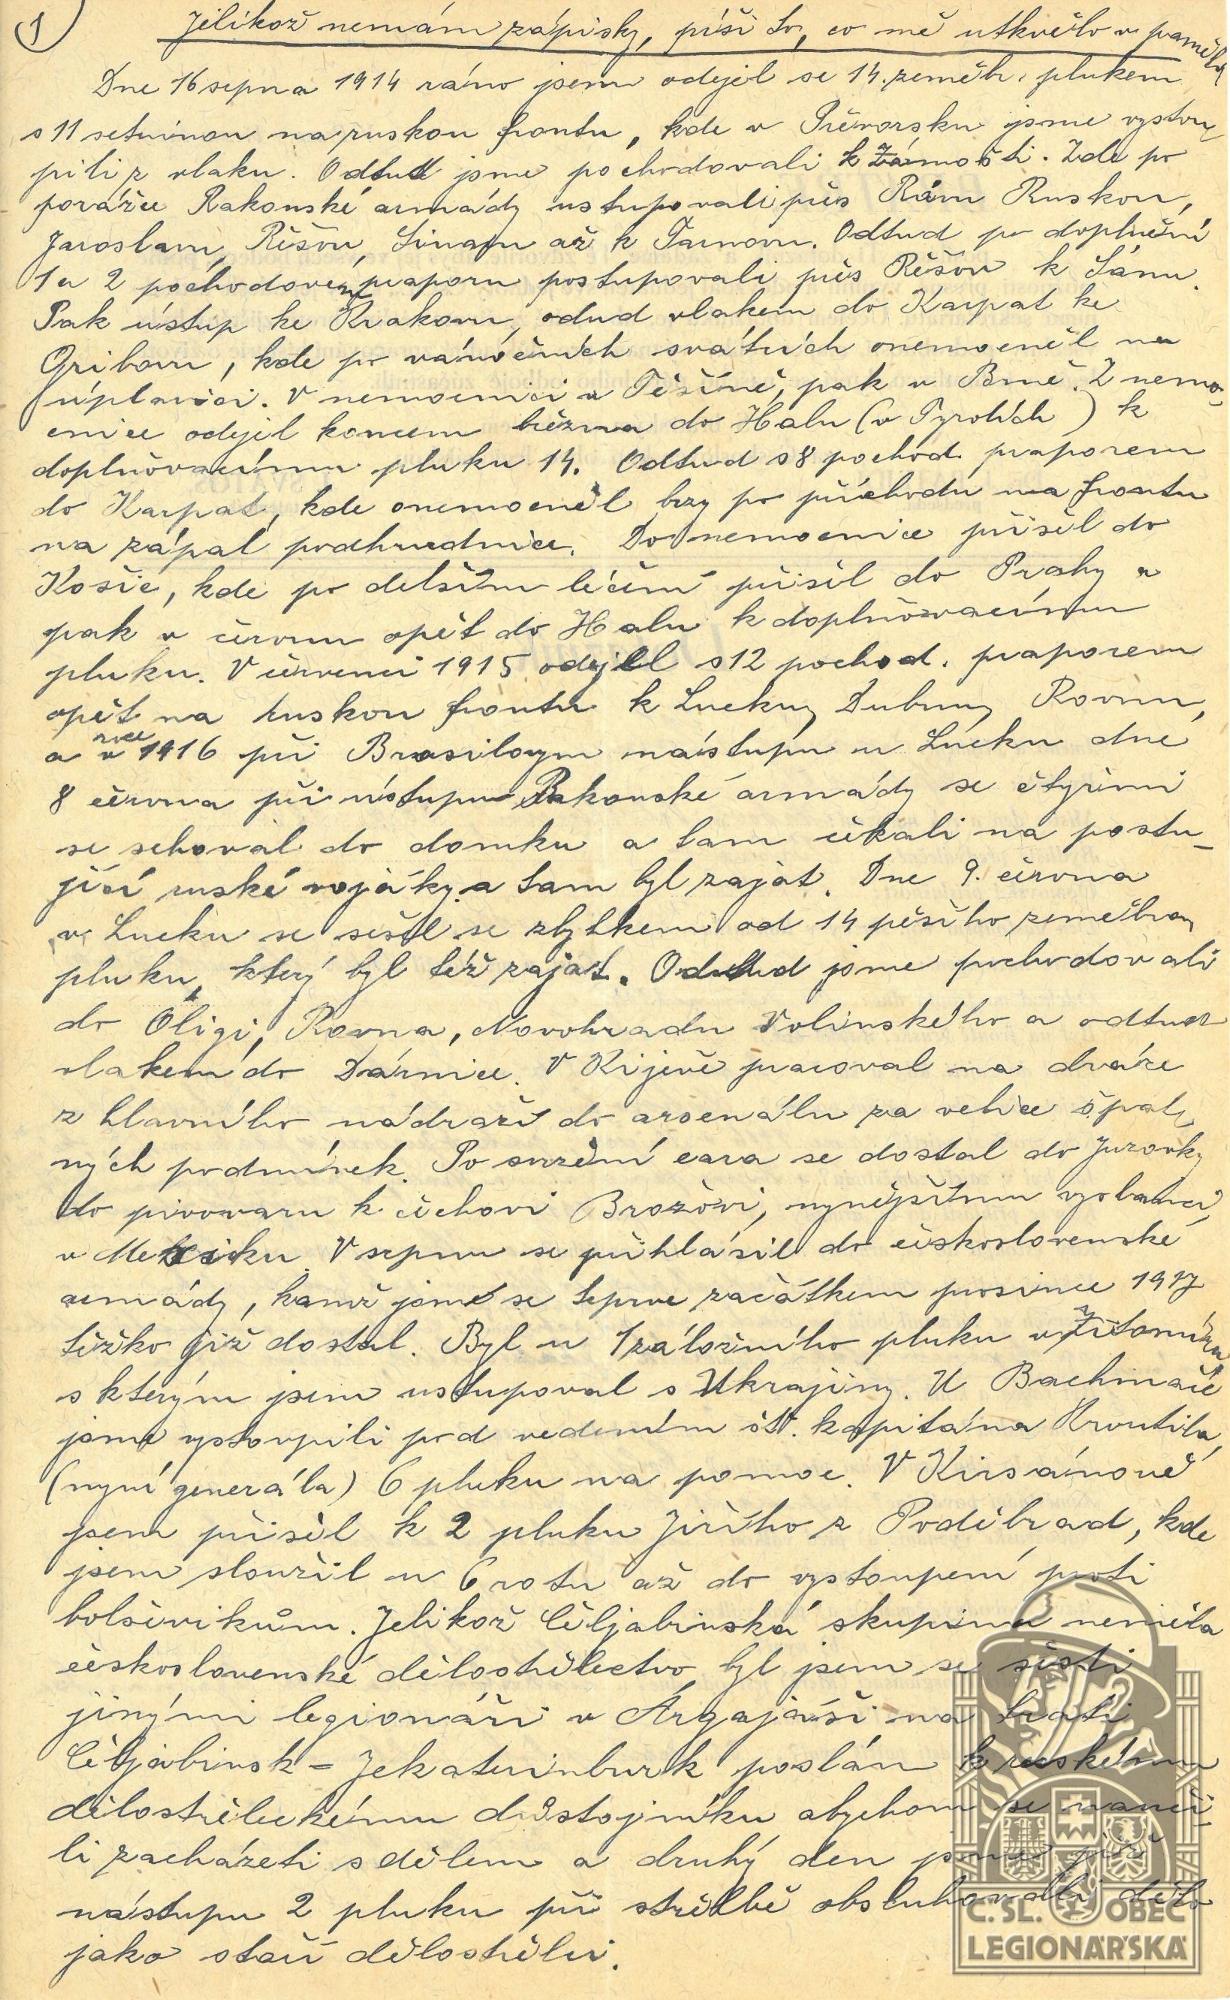 1
Jelikož nemám zápisky, píši to, co mě utkvělo v paměti,
Dne 16 srpna 1914 ráno jsem odejel se 14. zeměbr. plukem
s 11 setninou na ruskou frontu, kde v Převorsku jsme vystou-
pili z vlaku. Odtud jsme pochodovali k Zámošti. Zde po
porážce Rakouské armády ustupovali přes Rám Ruskou,
Jaroslav, Řěšov, Sinavu až k Tarnovu. Odtud po doplnění
1 a 2 pochodovém praporu postupovali přes Řěšov k Sánu.
Pak ústup ke Krakovu, odud vlakem do Karpat ke
Gribovu, kde po vánočních svátcích onemocněl na
úplavici. V nemocnici v Těšíně, pak v Brně. Z nemo-
cnice odejel koncem března do Halu (v Tyrolích) k
doplňovacímu pluku 14. Odtud s 8 pochod. praporem
do Karpat, kde onemocněl brzy po příchodu na frontu
na zápal pohrudnice. Do nemocnice přišel do
Košic, kde po delším léčení přišel do Prahy a
pak v červnu opět do Halu k doplňovacímu
pluku. V červenci 1915 odejel s 12 pochod. praporem
opět na ruskou frontu k Lucku, Dubnu, Rovnu,
a v roce 1916 při Brusilovym nástupu u Lucku dne
8 června při ústupu Rakouské armády se čtyřmi
se schoval do domku a tam čekali na postu-
jící ruské vojáky a tam byl zajat. Dne 9. června
v Lucku se sešel se zbytkem od 14 pěšího zeměbran.
pluku, který byl též zajat. Odtud jsme pochodovali
do Oligi, Rovna, Novohradu Volinského a odtud
vlakem do Dárnice. V Kijevě pracoval na dráze
z hlavního nádraží do arsenálu za velice špat-
ných podmínek. Po svržení cara se dostal do Jurovky
do pivovaru k čechovi Brožovi, nynějšímu vyslanci
v Meksiku. V srpnu se přihlásil do československé
armády, kamž jsme se teprve začátkem prosince 1917
těžko již dostal. Byl u 1 záložního pluku v Žitomíru
s kterým jsem ustupoval s Ukrajiny. U Bachmače
jsme vystoupili pod vedením št. kapitána Kroutila
(nyní generála) 6 pluku na pomoc. V Kirsánově
jsem přišel k 2 pluku Jiřího z Poděbrad, kde
jsem sloužil u 6 rotu až do vystoupení proti
bolševikům. Jelikož Čěljabinská skupina neměla
československé dělostřelectvo byl jsem se šesti
jinými legionáři v Árgajáši na trati
Čěljabinsk = Jekaterinburk poslán k ruskému
dělostřeleckému důstojníku abychom se nauči-
li zacházeti s dělem a druhý den jsme již
nástupu 2 pluku při střelbě obsluhovali dělo
jako staří dělostřelci.
Č. SL. OBEC
LEGIONÁŘSKÁ